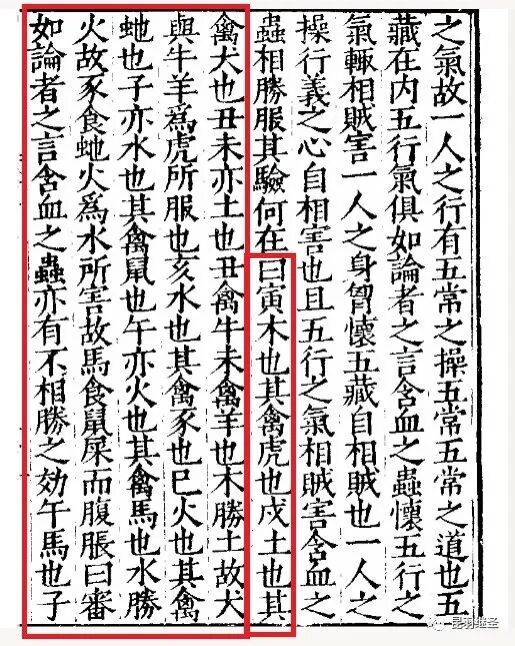 之氣故一人之行有五常之操五常五常之道也五
藏在内五行氣俱如論者之言含血之蟲懷五行之
氣輙相賊害一人之身胷懷五藏自相賊也一人之
操行義之心自相害也且五行之氣相賊害含血之
蟲相勝服其驗何在曰寅木也其禽虎也戌土也其
禽犬也丑未亦土也丑禽牛未禽羊也木勝土故犬
與牛羊爲虎所服也亥水也其禽豕也巳火也其禽
虵也子亦水也其禽鼠也午亦火也其禽馬也水勝
火故豕食虵火爲水所害故馬食鼠屎而腹脹曰審
如論者之言含血之蟲亦有不相勝之効午馬也子
昆羽继圣